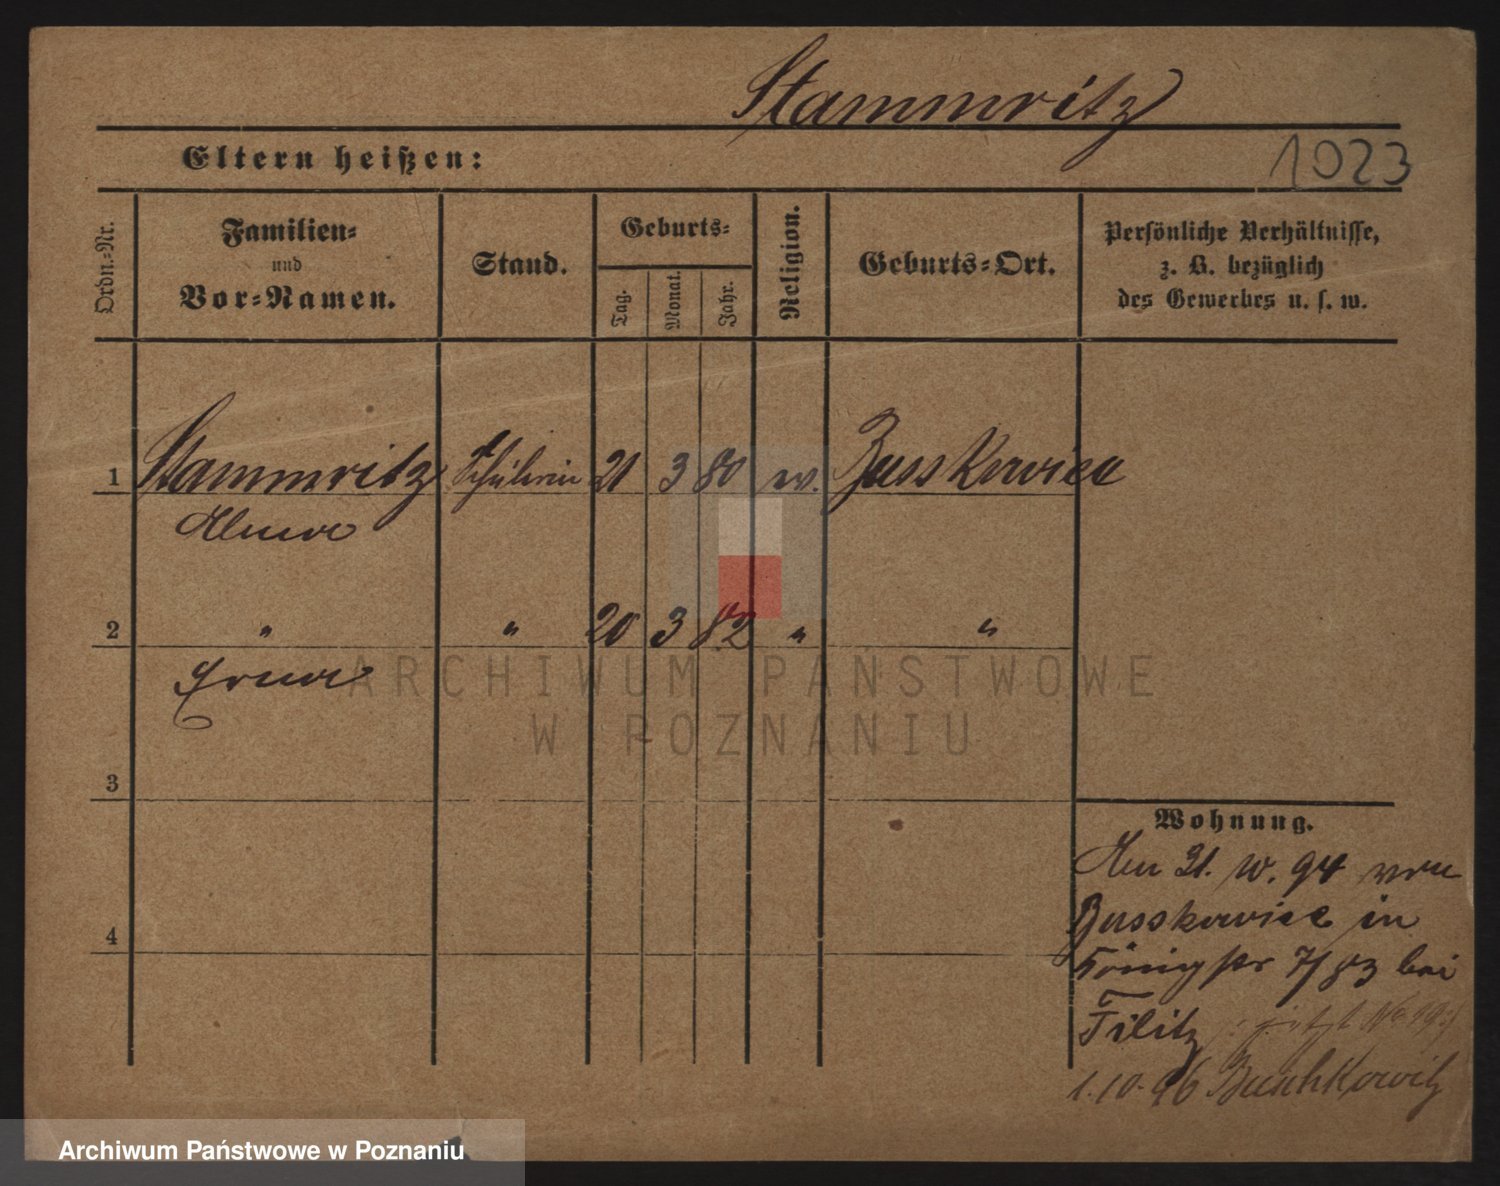 Stammritz
Eltern heißen:
1023
Ordn.-Nr.
Familien-
und
Vor-Namen.
Stand.
Geburts-
Tag.
Monat.
Jahr.
Religion.
Geburts-Ort.
Persönliche Verhältnisse,
z. B. bezüglich
des Gewerbes u. s. w.
1 Stammritz Schülerin 21 3 80 ev. Busskowiec
Alma
2 " " 20 3 82 " "
Erna
ARCHIWUM PAŃSTWOWE
W POZNANIU
3
Wohnung.
4
Am 21. 10. 94 von
Busskowiec in
Königstr 7/83 bei
Tilitz jetzt No 19
1.10.96 Buschkowitz
Archiwum Państwowe w Poznaniu